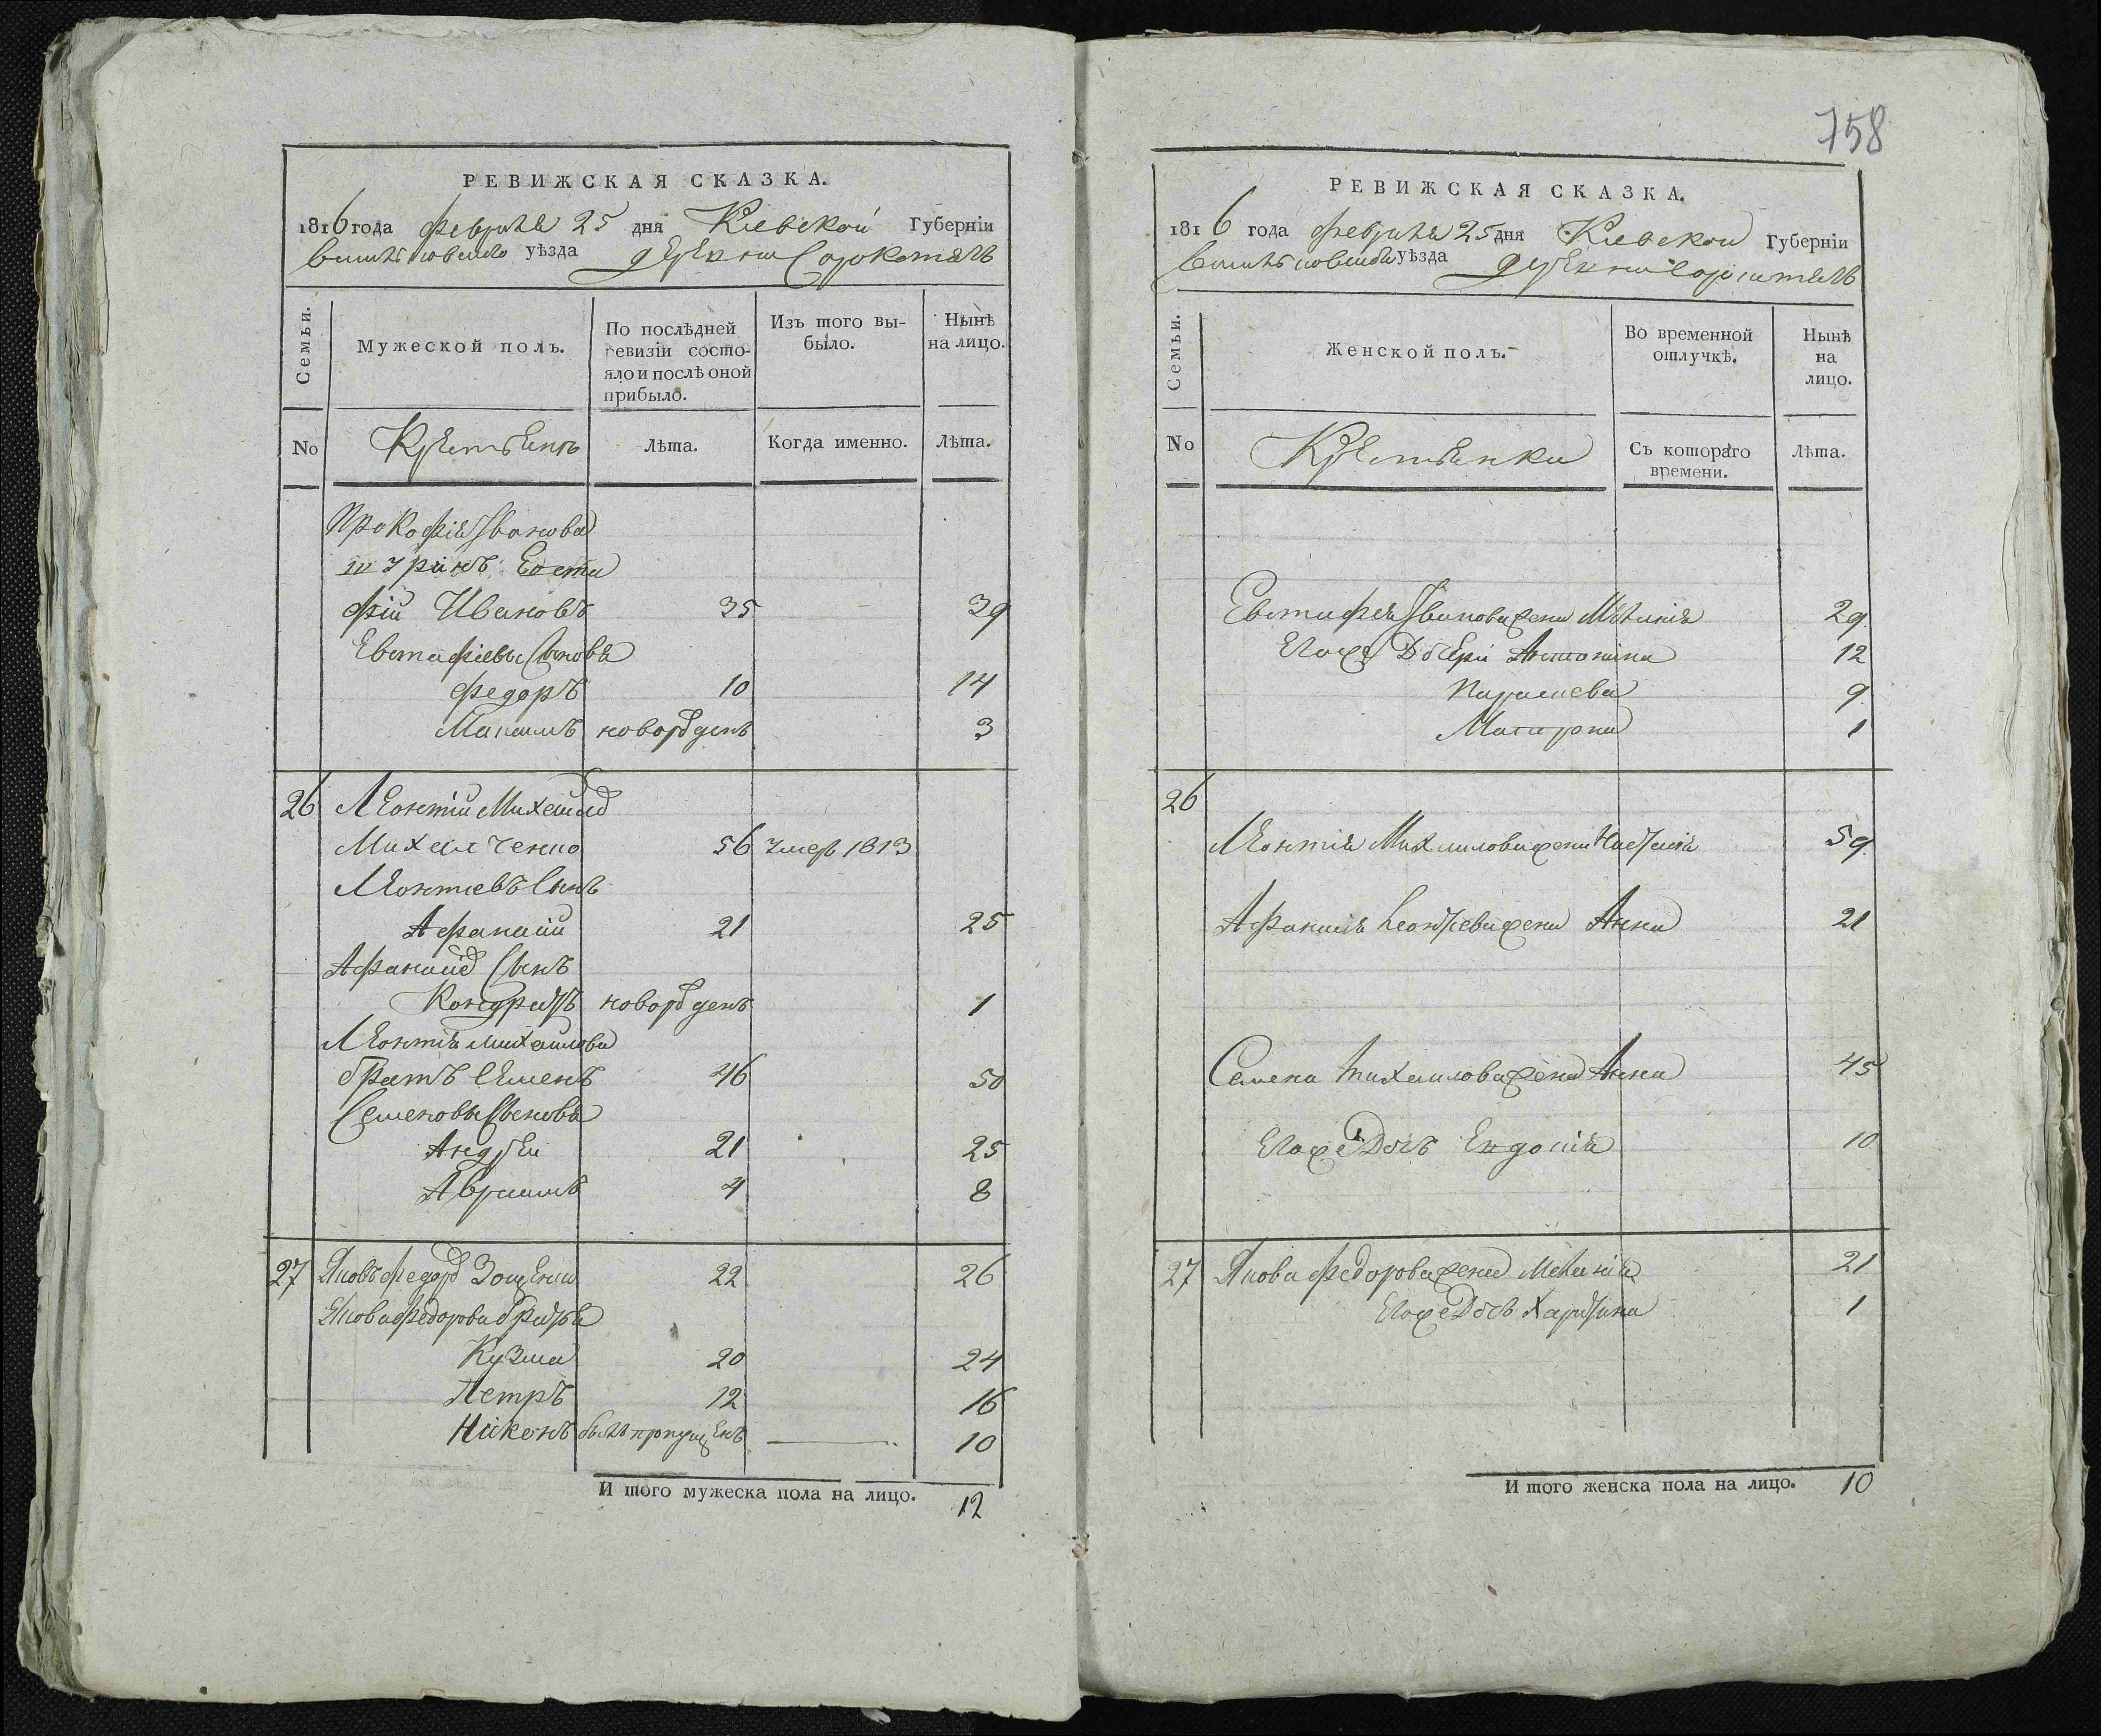 РЕВИЖСКАЯ СКАЗКА.
1816 года февраля 25 дня Киевской Губерніи
уѣзда деревни Сорокотягъ
Семьи.
Мужеской полъ.
По послѣдней ревизіи состояло и послѣ оной прибыло.
Изъ того выбыло.
Нынѣ на лицо.
No
Крестьянъ
Лѣта.
Когда именно.
Лѣта.
Прокофія Иванова
Евста
фій Ивановъ 35 39
Евстафіевы Сыновья
Федоръ 10 14
Максимъ новорожденъ 3
26 Леонтій Михайлов
Михайленко 56 умер 1813
Леонтіевъ Сынъ
Афанасій 21 25
Афанасіев Сынъ
Кондратъ новорожденъ 1
Леонтія Михайлова
братъ Семенъ 46 50
Семеновы Сыновья
Андрей 21 25
Аврамъ 4 8
27 Яковъ Федоров 22 26
Якова Федорова братья
Кузма 20 24
Петръ 12 16
Никонъ былъ пропущенъ 10
И того мужеска пола на лицо. 12
758
РЕВИЖСКАЯ СКАЗКА.
1816 года февраля 25 дня Киевской Губерніи
уѣзда деревни Сорокотягъ
Семьи.
Женской полъ.
Во временной отлучкѣ.
Нынѣ на лицо.
No
Крестьянки
Съ котораго времени.
Лѣта.
Евстафія Иванова жена Меланія 29
Егоже Дочери Антонина 12
Параскева 9
Матрона 1
26
Леонтія Михаилова жена Настасія 59
Афанасія Леонтіева жена Анна 21
Семена Михаилова жена Анна 45
Егоже Дочь Евдокія 10
27 Якова Федорова жена Меланія 21
Егоже Дочь Харитина 1
И того женска пола на лицо. 10